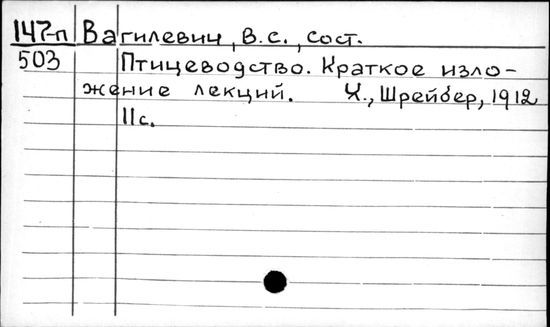 147-п Вагилевич, В.С., сост.
503 Птицеводство. Краткое изло-
жение лекций. Х., Шрейбер, 1912
11с.